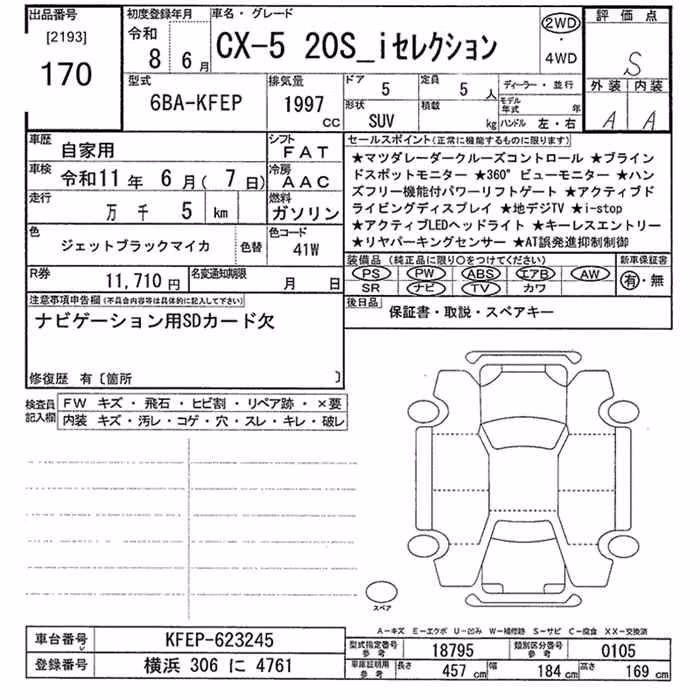 出品番号
[2193]
170
初度登録年月
令和
8 6 月
車名・グレード
CX-5 20S_iセレクション
2WD
・
4WD
評価点
S
外装 内装
A A
型式
6BA-KFEP
排気量
1997
CC
ドア
5
定員
5 人
形状
SUV
積載
kg
ディーラー・並行
モデル年式 年
ハンドル 左・右
車歴
自家用
シフト
FAT
車検
令和11 年 6 月( 7 日)
冷房
AAC
走行
万 千 5 km
燃料
ガソリン
色
ジェットブラックマイカ
色替
色コード
41W
R券
11,710 円
名変通知期限
月 日
セールスポイント(正常に機能するものに限ります)
★マツダレーダークルーズコントロール ★ブライン
ドスポットモニター ★360°ビューモニター ★ハン
ズフリー機能付パワーリフトゲート ★アクティブド
ライビングディスプレイ ★地デジTV ★i-stop
★アクティブLEDヘッドライト ★キーレスエントリー
★リヤパーキングセンサー ★AT誤発進抑制制御
装備品 (純正品に限り○をつけてください)
PS PW ABS エアB AW
SR ナビ TV カワ
新車保証書
有・無
後日品
保証書・取説・スペアキー
注意事項申告欄(不具合内容等は具体的に記入して下さい)
ナビゲーション用SDカード欠
修復歴 有〔箇所 〕
検査員
記入欄
FW キズ・飛石・ヒビ割・リペア跡・×要
内装 キズ・汚レ・コゲ・穴・スレ・キレ・破レ
スペア
A-キズ E-エクボ U-凹み W-補修跡 S-サビ C-腐食 XX-交換済
車台番号
KFEP-623245
登録番号
横浜 306 に 4761
型式指定番号
参考
18795
類別区分番号
参考
0105
車庫証明用
参考
長さ
457 cm
幅
184 cm
高さ
169 cm